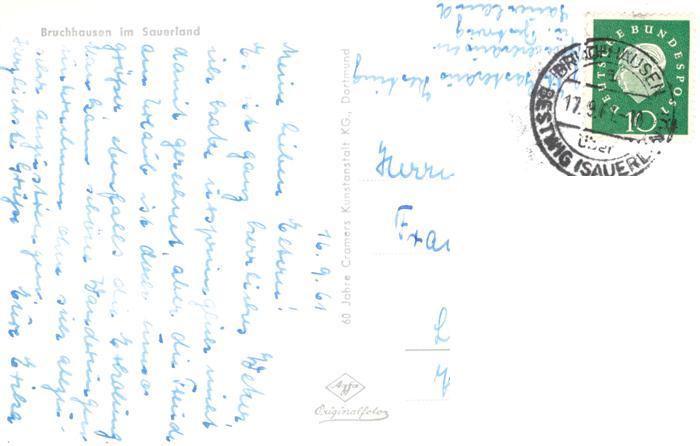 Bruchhausen im Sauerland
16.9.61
Meine lieben Eltern!
Es ist ganz herrliches Wetter,
ich hatte ursprünglich nicht
damit gerechnet, aber die Freude
am Urlaub ist doch
größer ebenfalls die Erholung
Man kann schöne Wanderungen
unternehmen ohne sich
sehr anzustrengen.
Herzlichste Grüße Eure
60 Jahre Cramers Kunstanstalt KG, Dortmund
Agfa
Originalfoto
Herrn
DEUTSCHE BUNDESPOST
10
BRUCHHAUSEN
17.9.61
über
BESTWIG (SAUERL